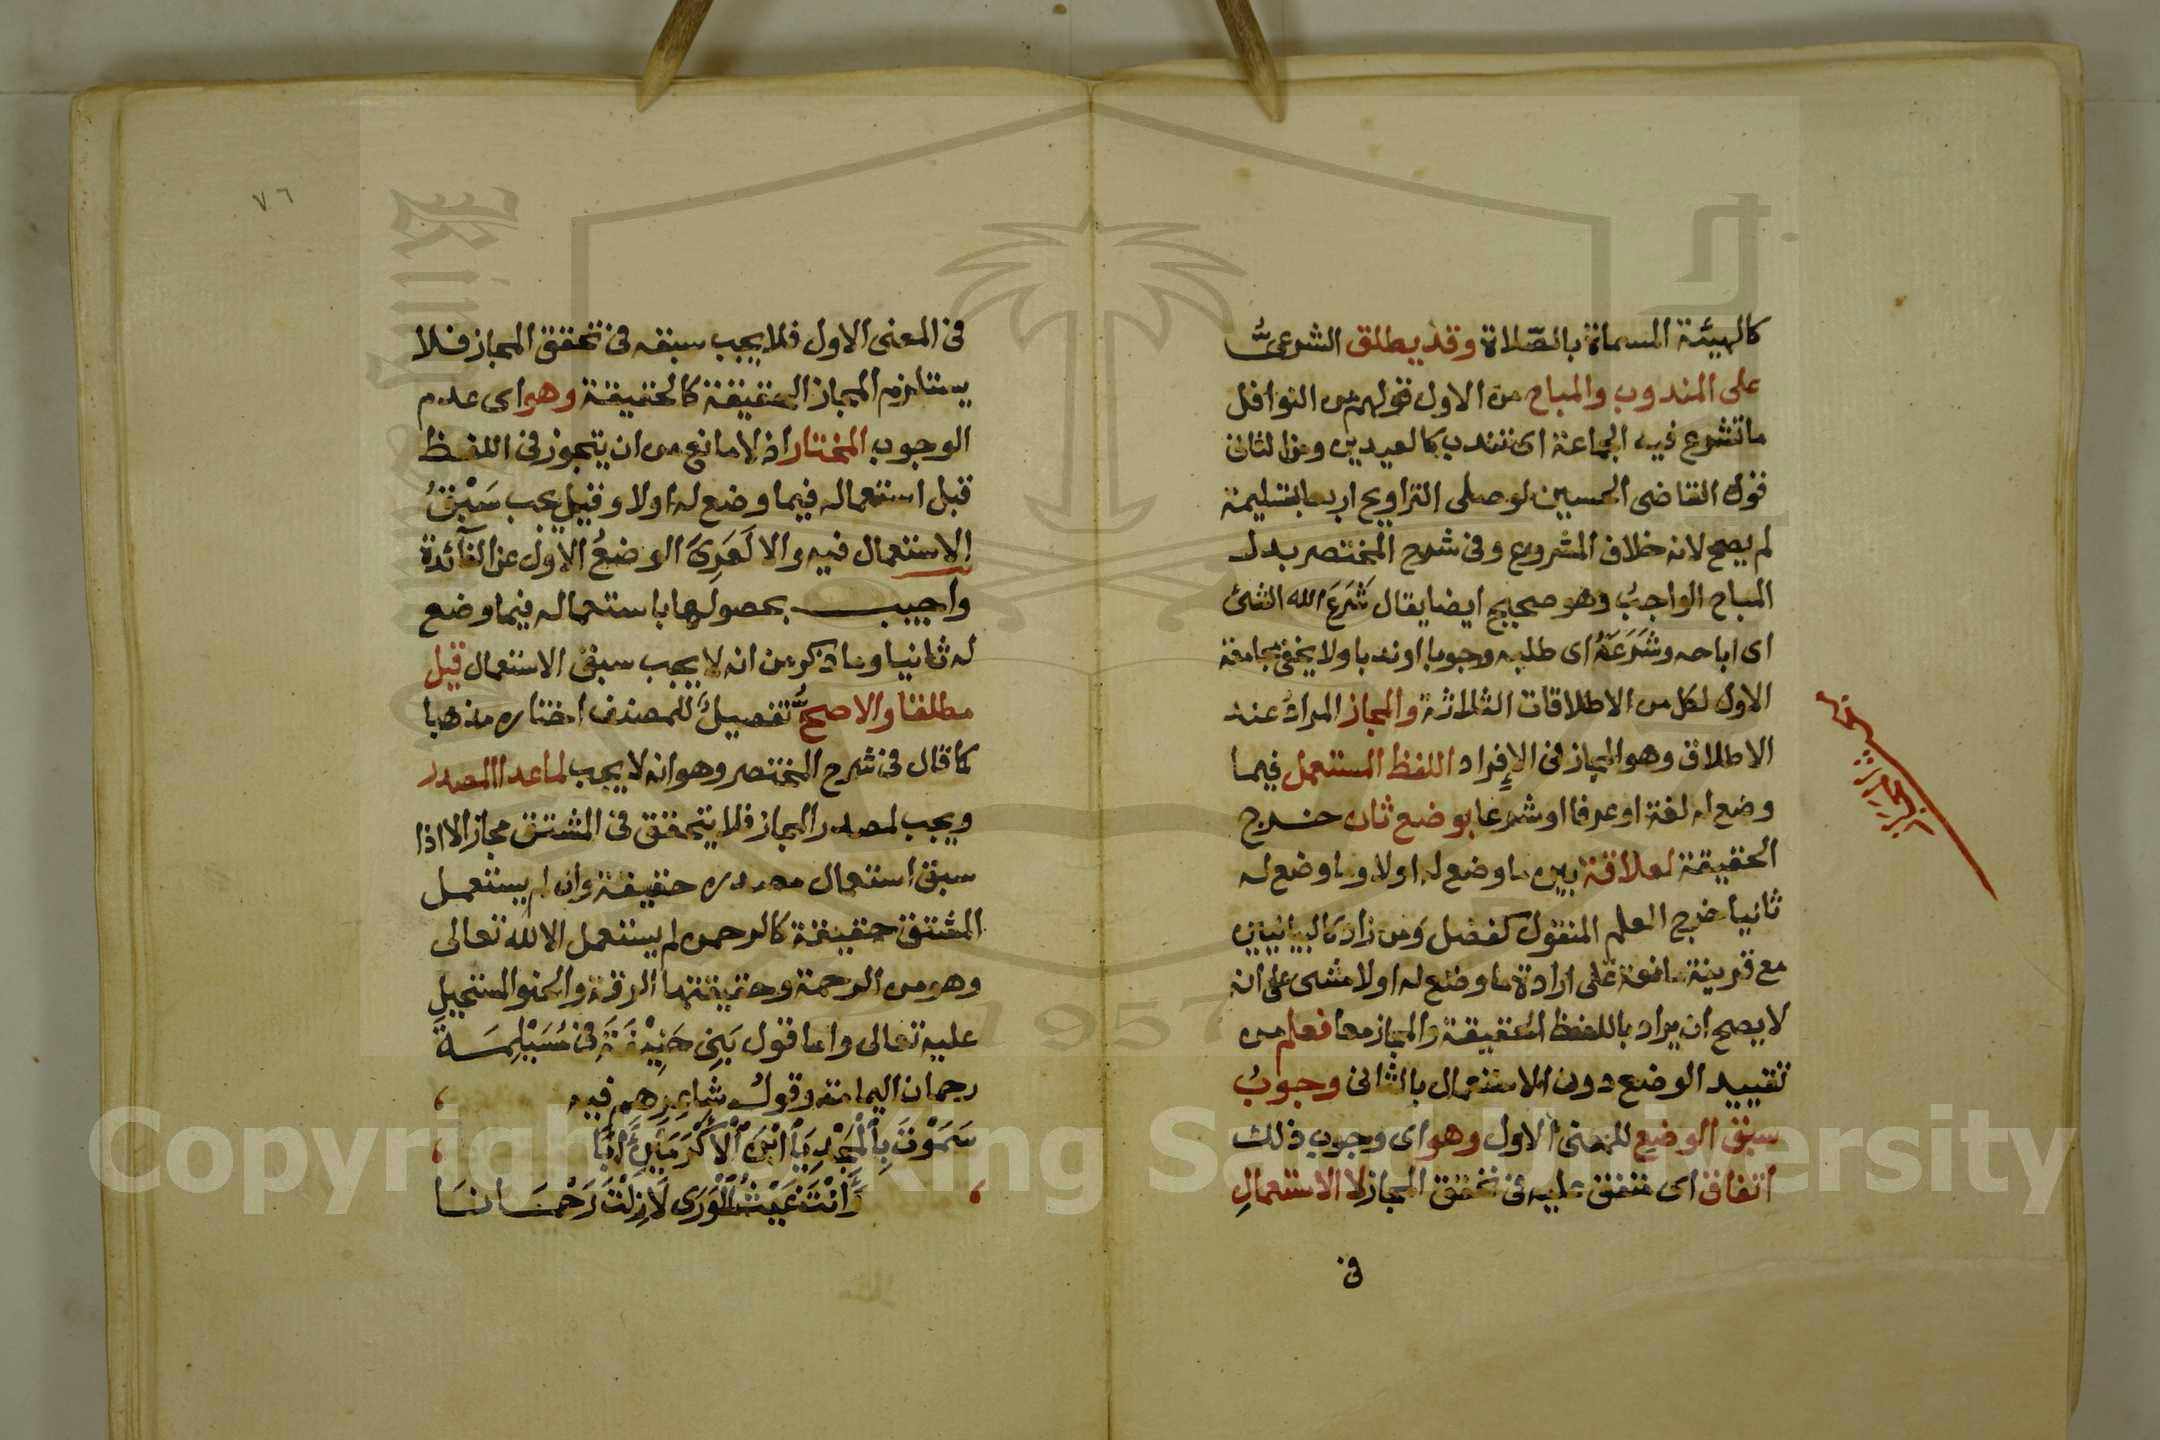 كالهيئة المسماة بالصّلاة وقد يطلق الشرعىُّ
على المندوب والمباح من الاول قولهم من النوافل
ما تشرع فيه الجماعة اى تندب كالعيدين ومن الثانى
قول القاضى الحسين لو صلى التراويح اربعا بتسليمة
لم يصح لانه خلاف المشروع وفى شرح المختصر بدل
المباح الواجبُ وهو صحيح ايضا يقال شَرَعَ الله الشئ
اى اباحه وشَرَعَهُ اى طلبه وجوبا او ندبا ولا يخفى مجامعة
الاول لكل من الاطلاقات الثلاثة والمجاز المرادُ عند
الاطلاق وهو المجاز فى الإفراد اللفظ المستعمل فيما
وضع له لغة او عرفا او شرعا بوضع ثان خرج
الحقيقة لعلاقة بين ما وضع له اولا وما وضع له
ثانيا خرج العلم المنقول كفضل ومن زاد كالبيانيين
مع قرينة مانعة على ارادة ما وضع له اولا مشى على انه
لا يصح ان يراد باللفظ الحقيقة والمجاز معا فعلم من
تقييد الوضع دون الاستعمال بالثانى وجوبُ
سبق الوضع للمعنى الاول وهو اى وجوب ذلك
اتفاق اى متفق عليه فى تحقق المجاز لا الاستعمالِ
فى
٧٦
فى المعنى الاول فلا يجب سبقه فى تحقق المجاز فلا
يستلزم المجاز الحقيقة كالحقيقة وهو اى عدم
الوجوب المختار اذ لا مانع من ان يتجوز فى اللفظ
قبل استعماله فيما وضع له اولا وقيل يجب سَبْقُ
الاستعمال فيه والا لَعَرِىَ الوضعُ الاول عن الفآئدة
واجيب بحصولها باستعماله فيما وضع
له ثانيا وما ذكر من انه لا يجب سبق الاستعمال قيل
مطلقا والاصحُّ تفصيلٌ للمصنف اختاره مذهبا
كما قال فى شرح المختصر وهو انه لا يجب لما عدا المصدر
ويجب لمصدر المجاز فلا يتحقق فى المشتق مجاز الا اذا
سبق استعمال مصدره حقيقة وان لم يستعمل
المشتق حقيقة كالرحمن لم يستعمل الا لله تعالى
وهو من الرحمة وحقيقتها الرقة والحنو المستحيل
عليه تعالى واما قول بَنِى حَنِيْفَةَ فى مُسَيْلِمَةَ
رحمان اليمامة وقول شاعِرِهم فيه
سَمَوْتَ بِالْمَجْدِ يَا ابْنَ الْاَكْرَمَيْنِ اَبًا
وَاَنْتَ غَيْثُ الْوَرَى لَا زِلْتَ رَحْمَانَا